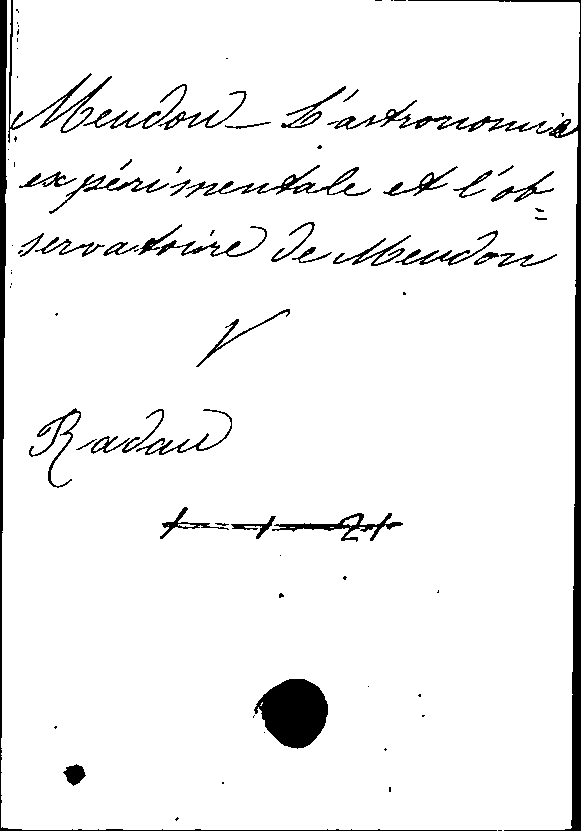 Meudon – L'astronomie
expérimentale et l'ob=
servatoire de Meudon
V
Radau